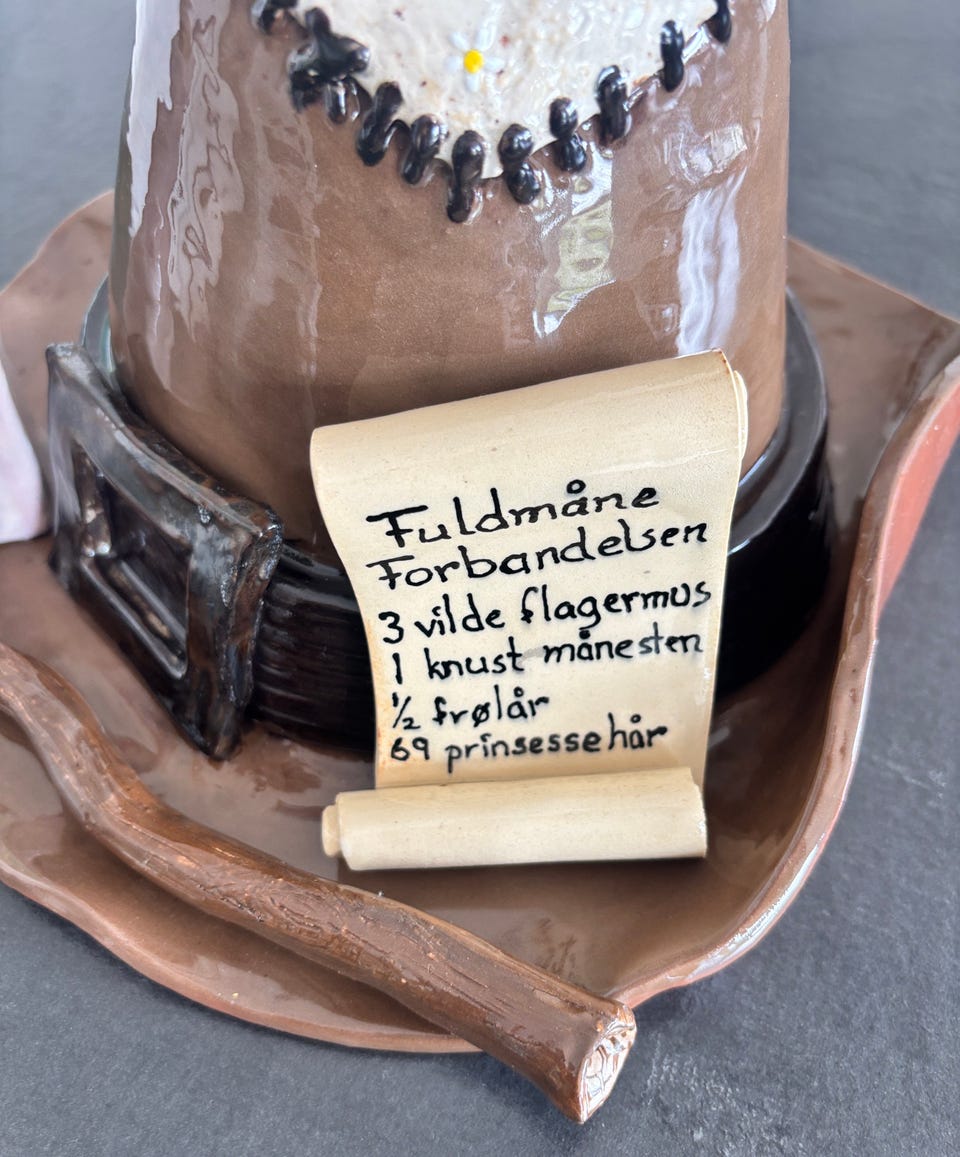 Fuldmåne
Forbandelsen
3 vilde flagermus
1 knust månesten
½ frølår
69 prinsessehår